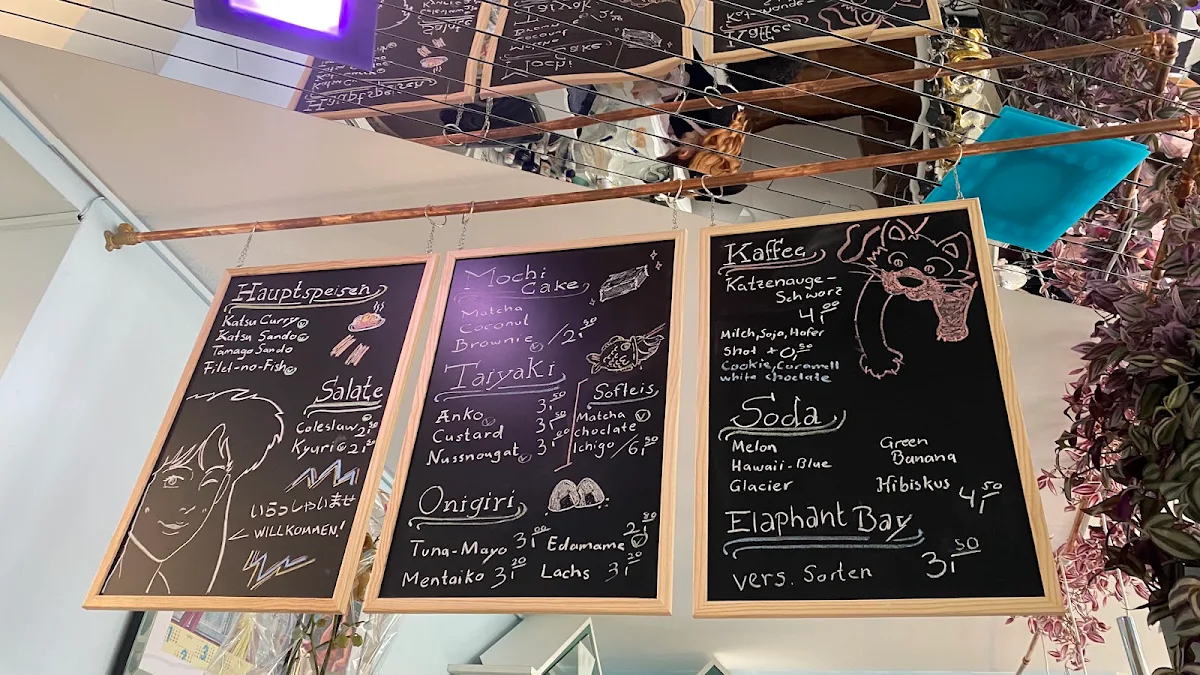 Hauptspeisen
Katsu Curry Ⓥ
Katsu Sando Ⓥ
Tamago Sando
Filet-no-Fish Ⓥ
Salate
Coleslaw 2,50
Kyuri Ⓥ 2,20
いらっしゃいませ
← WILLKOMMEN!
Mochi
Cake
Matcha
Coconut
Brownie Ⓥ / 2,50
Taiyaki
Anko Ⓥ 3,50
Custard 3,50
Nussnougat Ⓥ 3,00
Softeis
Matcha Ⓥ
choclate
Ichigo / 6,50
Onigiri
Tuna-Mayo 3,00 Edamame Ⓥ 2,80
Mentaiko 3,20 Lachs 3,20
Kaffee
Katzenauge-
Schwarz
4,00
Milch, Soja, Hafer
Shot + 0,50
Cookie, Caramell
white choclate
Soda
Melon
Hawaii-Blue
Glacier
Green
Banana
Hibiskus 4,50
Elaphant Bay
vers. Sorten 3,50